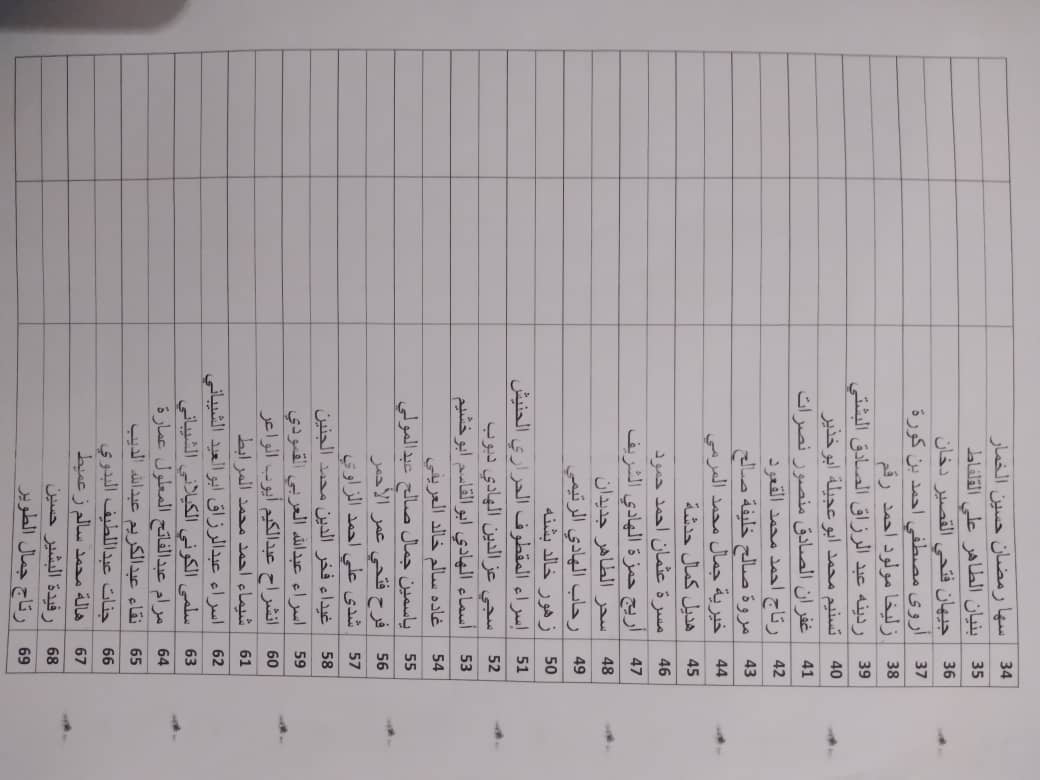 34 سها رمضان حسين الخمار
35 بنيان الطاهر علي القلفاط
36 جيهان فتحي القصير دخان
37 أروى مصطفي احمد بن كورة
38 زليخا مولود احمد رقم
39 ردينه عبد الرزاق الصادق البشتي
40 تسنيم محمد ابو عجيلة ابوخذير
41 غفران الصادق منصور نصرات
42 رتاج احمد محمد القعود
43 مروة صالح خليفة صالح
44 خيرية جمال محمد المرمي
45 هديل كمال حدشة
46 مسرة عثمان احمد حمود
47 أريج حمزة الهادي الشريف
48 سحر الطاهر جديدان
49 رحاب الهادي الرتيمي
50 زهور خالد بشنه
51 إسراء المقطوف الحراري الحنيش
52 سجي عزالدين الهادي دبوب
53 أسماء الهادي ابوالقاسم ابوخشيم
54 غاده سالم خالد العريفي
55 ياسمين جمال صالح عبدالمولي
56 فرح فتحي عمر الأحمر
57 شدى علي احمد الزاوي
58 غيداء فخر الدين محمد الجنين
59 اسراء عبدالله العربي القمودي
60 انشراح عبدالكيم ايوب الواعر
61 شيماء احمد محمد المرابط
62 اسراء عبدالرزاق ابو العيد الشيباني
63 سلمى الكوني الكيلاني الشيباني
64 مرام عبدالفاتح المعلول عمارة
65 نقاء عبدالكريم عبدالله الديب
66 جنات عبداللطيف البدوي
67 هالة محمد سالم زعميط
68 رفيدة البشير حسين
69 رتاج جمال الطوير